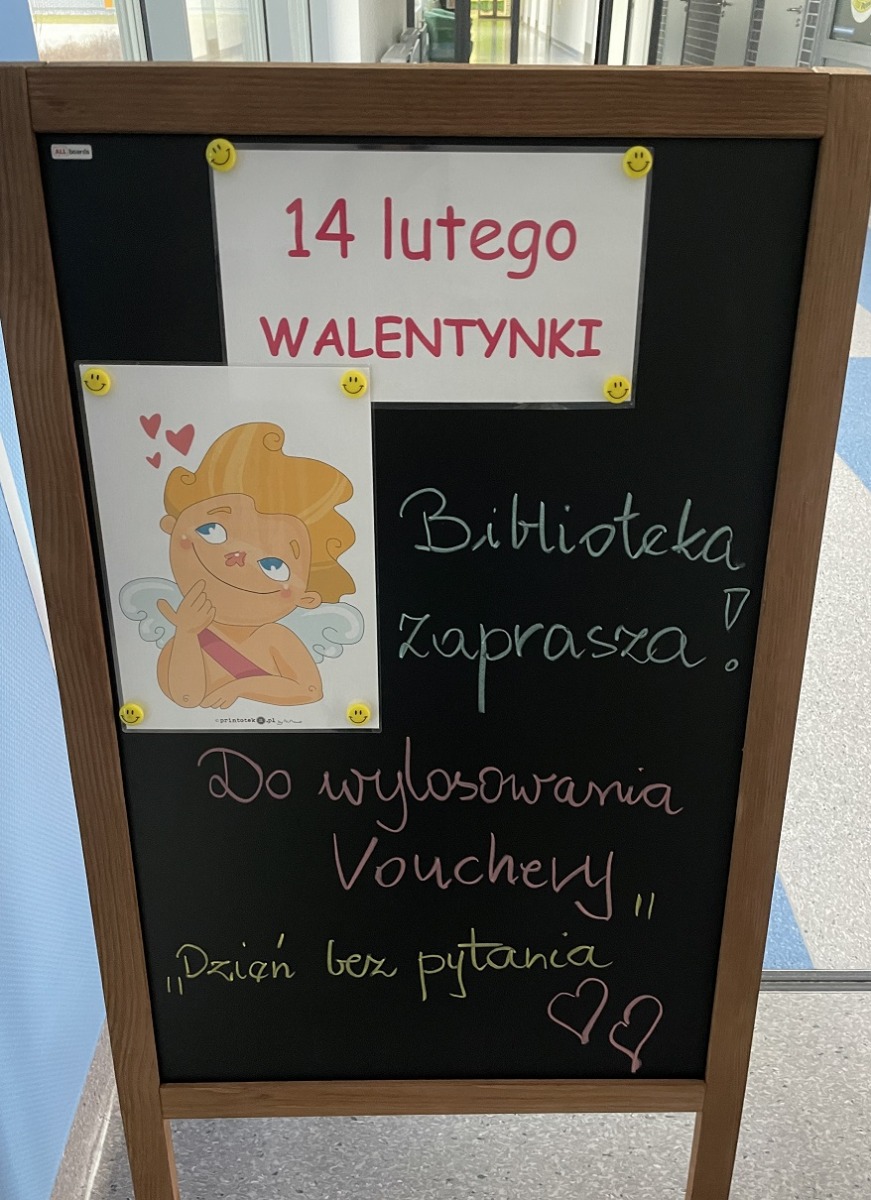 ALL boards
14 lutego
WALENTYNKI
Biblioteka
zaprasza!
Do wylosowania
Vouchery
„Dzień bez pytania"
©printotek.pl